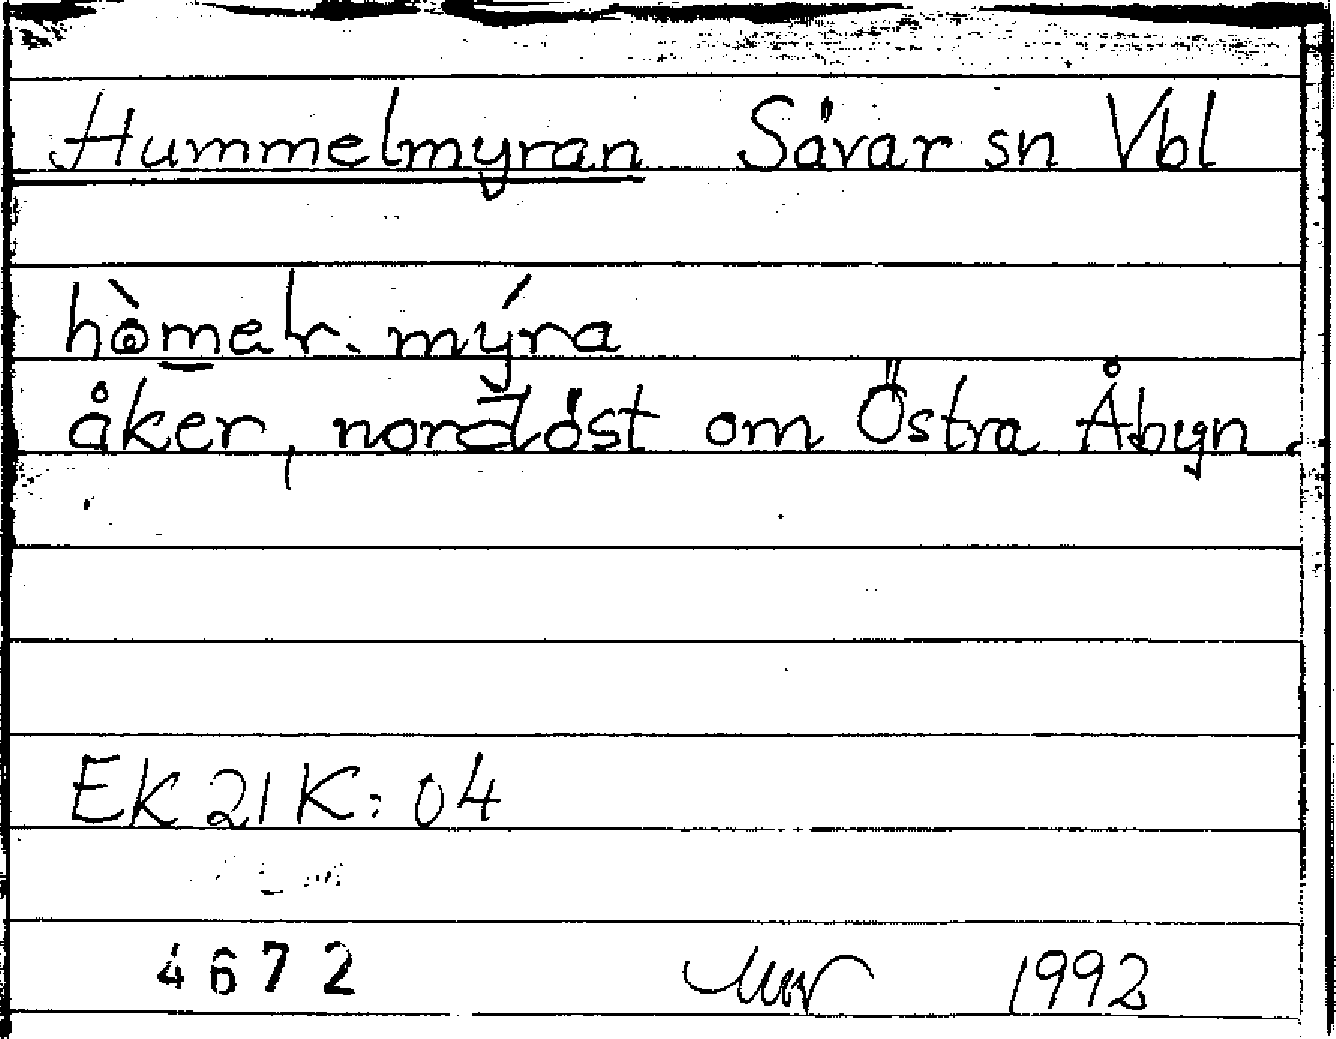 Hummelmyran Sävar sn Vbl
mýra
åker, nordöst om Östra Åbyn.
EK 21 K: 04
4672 1992